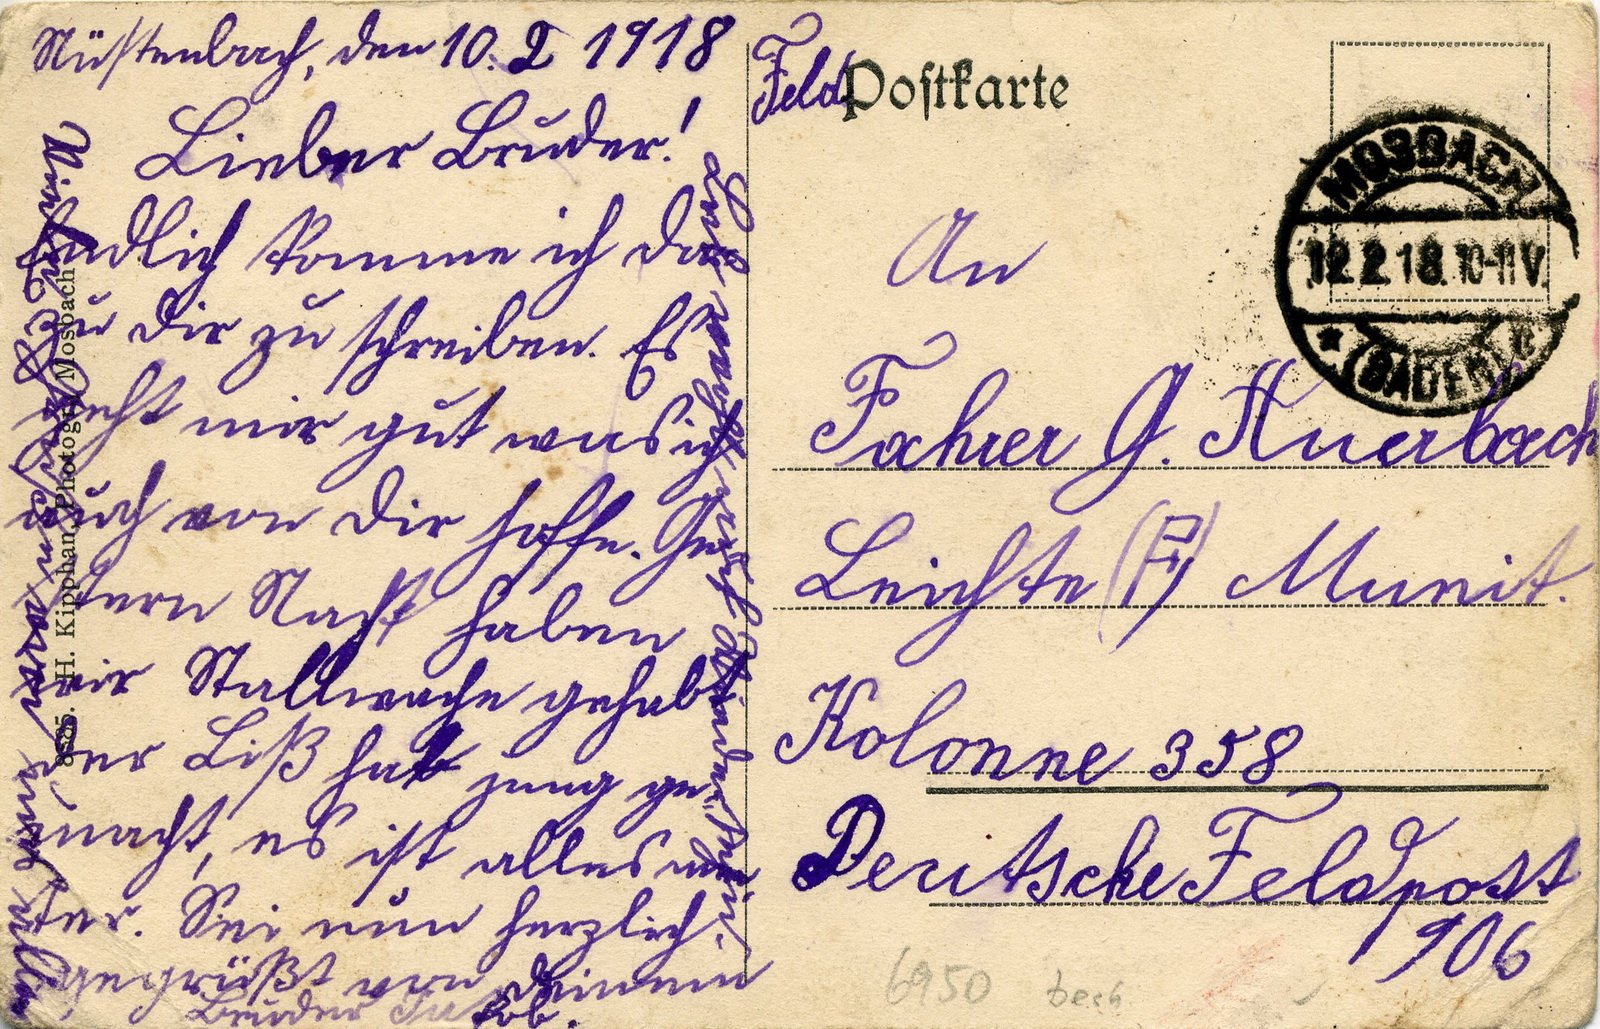 Nüstenbach, den 10. 2 1918
Lieber Bruder!
Endlich komme ich da
zu dir zu schreiben. Es
geht mir gut was ich
auch von dir hoffe. Ges
tern Nacht haben
wir Stallwache gehabt
der Liß hat jung ge-
macht, es ist alles mun
ter. Sei nun herzlich
gegrüßt von deinem
Bruder Jakob.
8885. H. Kipphan, Photogr., Mosbach
Feld Postkarte
MOSBACH
12.2.18.10-11V.
(BADEN)
An
Fahrer G. Auerbach
Leichte (F) Munit.
Kolonne 358
Deutsche Feldpost
906
6950